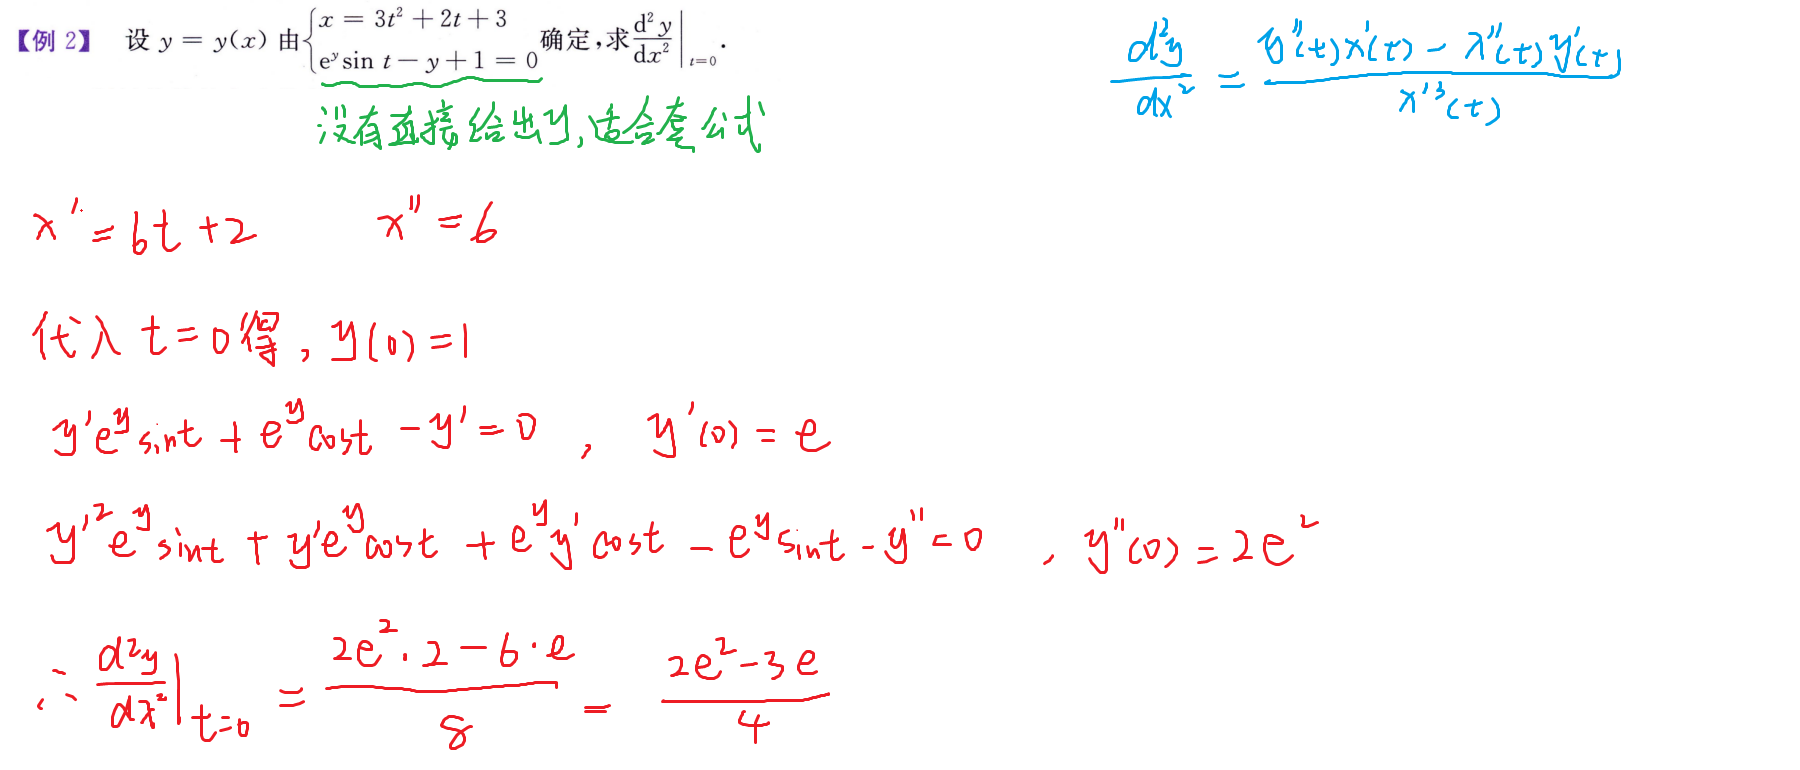 【例 2】 设 y = y(x) 由 { x = 3t² + 2t + 3
e^y sin t − y + 1 = 0 确定,求 d²y/dx² |_{t=0}.
d²y/dx² = (y''(t)x'(t) − x''(t)y'(t)) / x'³(t)
没有直接给出y,适合套公式
x' = 6t + 2 x'' = 6
代入 t = 0 得, y(0) = 1
y'e^y sint + e^y cost − y' = 0 , y'(0) = e
y'² e^y sint + y'e^y cost + e^y y' cost − e^y sint − y'' = 0 , y''(0) = 2e²
∴ d²y/dx² |_{t=0} = (2e²·2 − 6·e)/8 = (2e² − 3e)/4